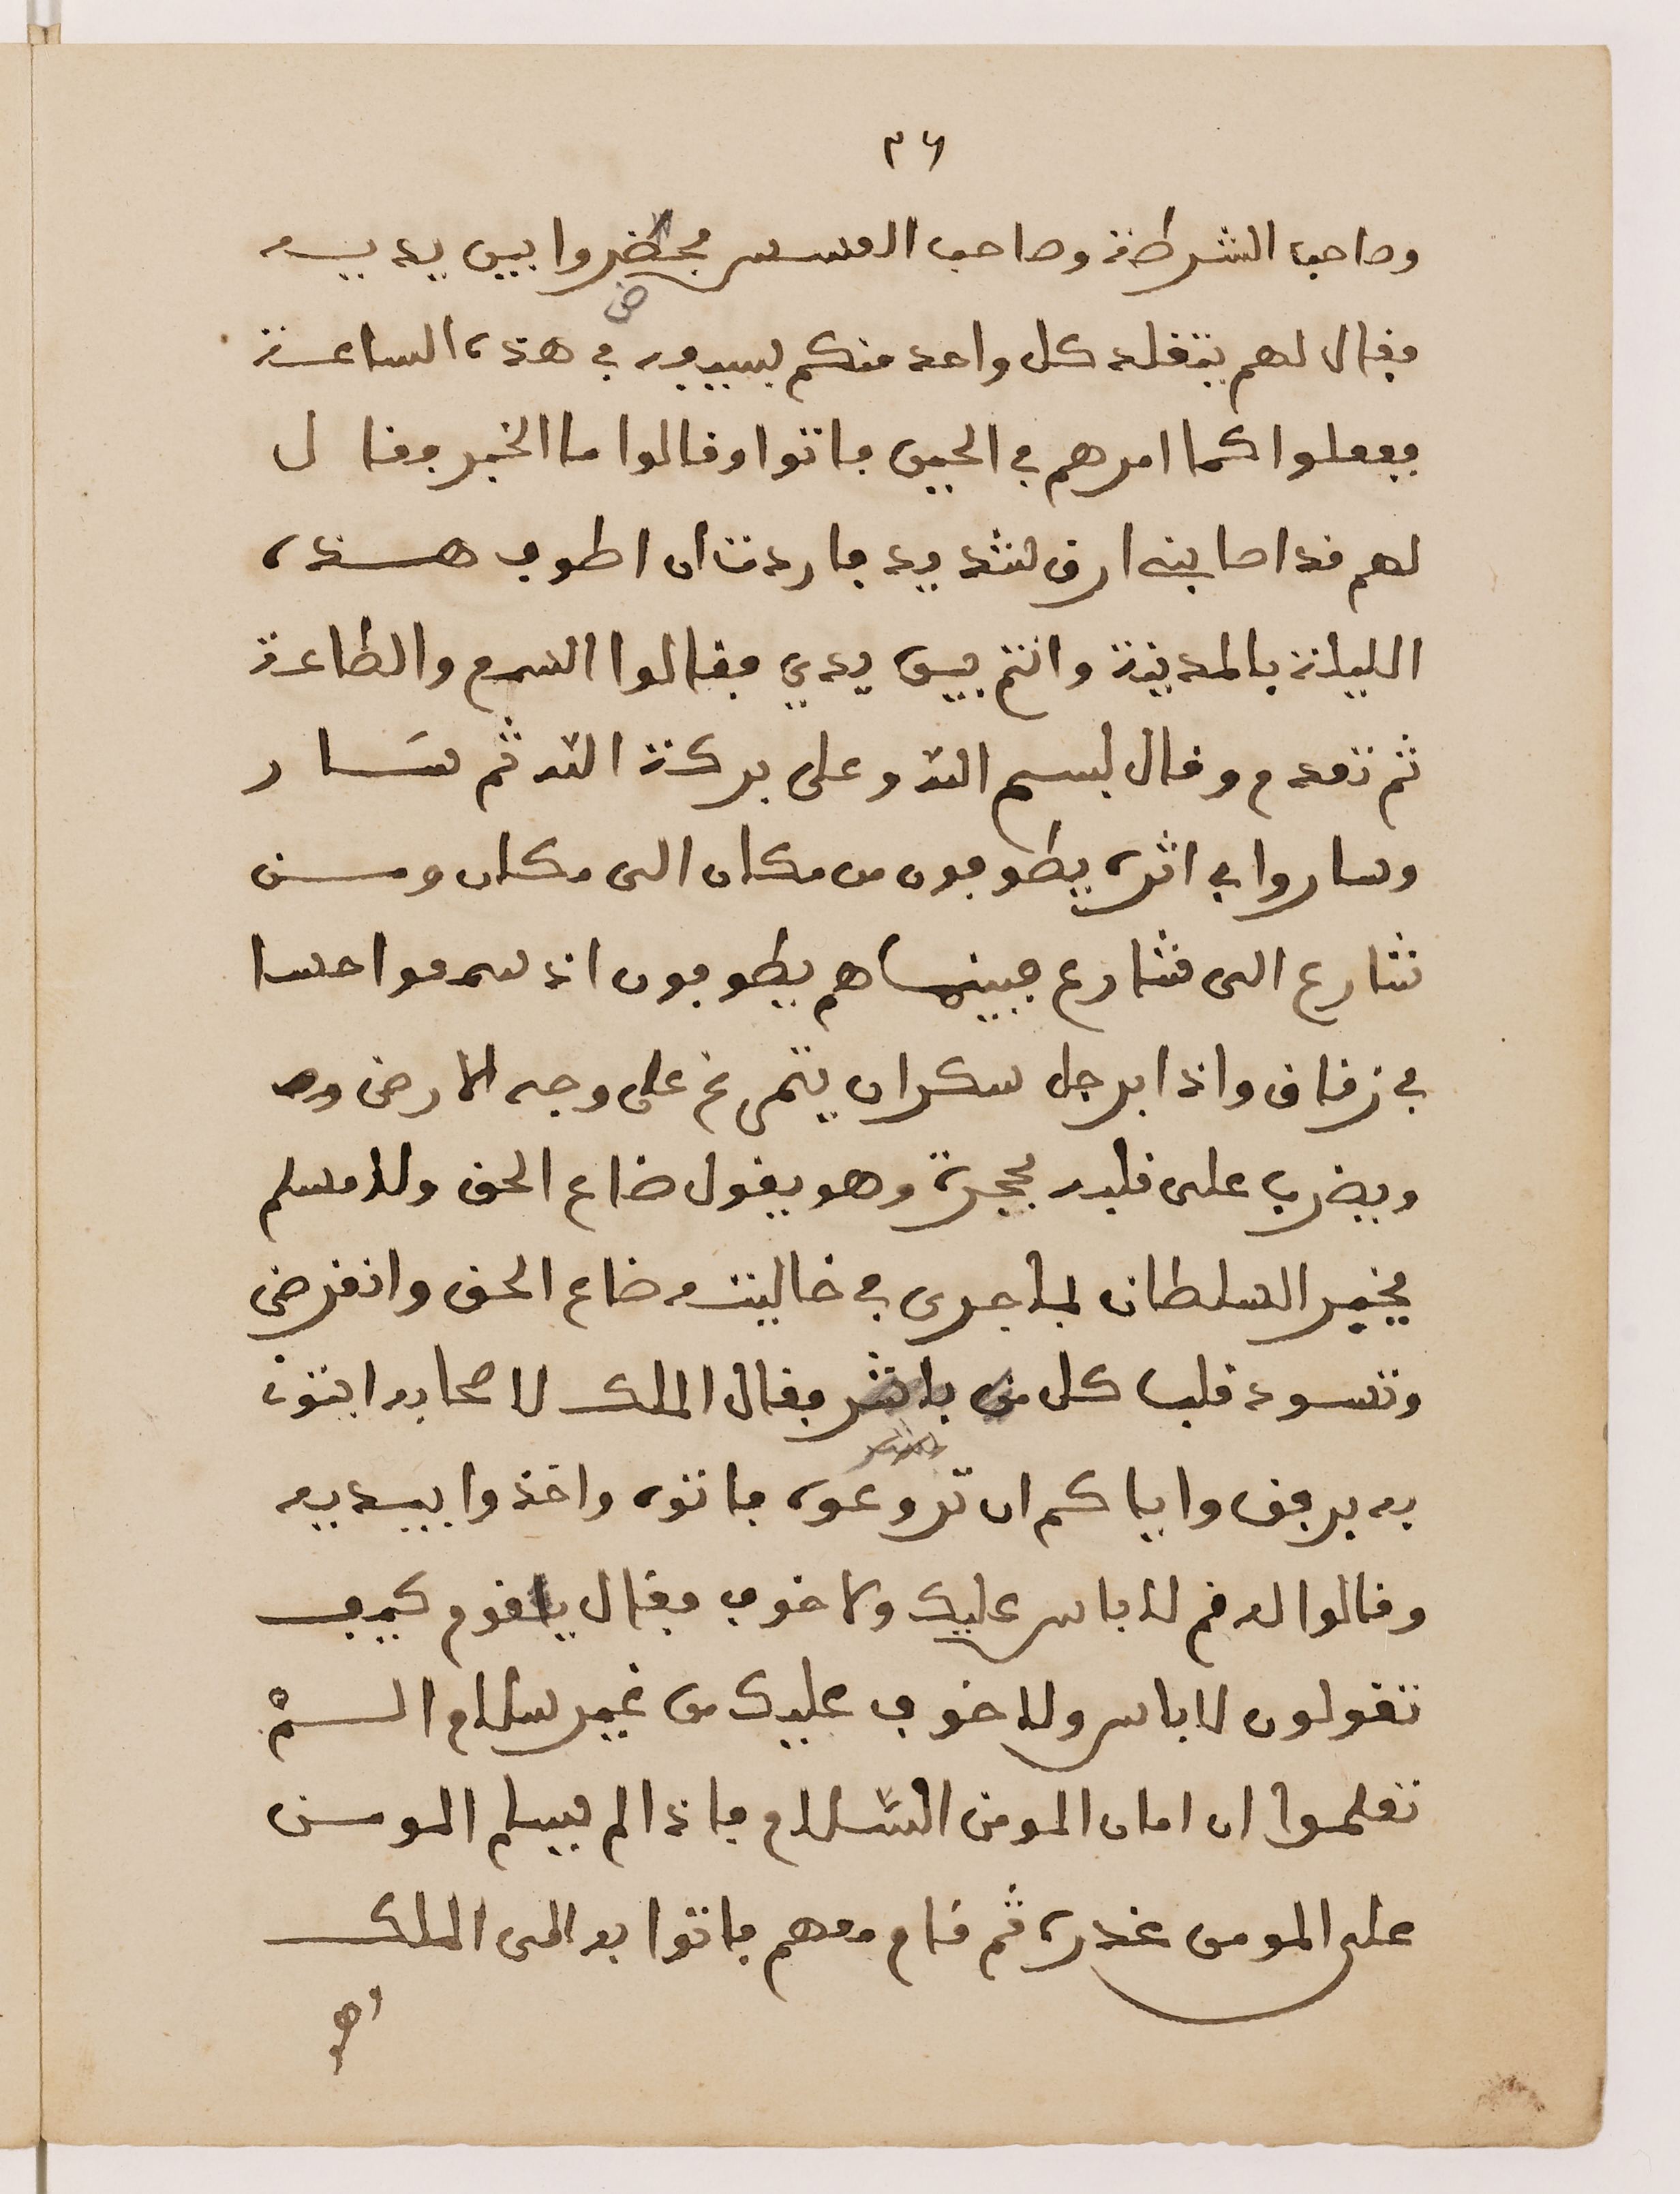 ٣٦
وصاحب الشرطة وصاحب العسس فحضروا بين يديه
ض
فقال لهم يتقلد كل واحد منكم بسيفه في هذه الساعة
ففعلوا كما امرهم في الحين فاتوا وقالوا ما الخبر فقال
لهم قد اصابني ارق شديد فاردت ان اطوف هذه
الليلة بالمدينة وانتم بين يدي فقالوا السمع والطاعة
ثم تقدم وقال بسم الله وعلى بركة الله ثم سَار
وساروا في اثره يطوفون من مكان الى مكان ومن
شارع الى شارع فبينما هم يطوفون اذ سمعوا حسا
في زقاق واذا برجل سكران يتمرغ على وجه الارض
ويضرب على قلبه بحجرة وهو يقول ضاع الحق ولا مسلم
يخبر السلطان بما جرى في خاليته ضاع الحق وانقرض
وتسود قلب كل من فقال الملك لاصحابه ايتوني
به برفق واياكم ان تروعوه فاتوه واخذوا بيديه
وقالوا له قم لا باس عليك ولا خوف فقال يا قوم كيف
تقولون لا باس ولا خوف عليك من غير سلام السْم
تعلموا ان امان المومن السّلام فاذا لم يسلم المومن
على المومن غدره ثم قام معهم فاتوا به الى الملك